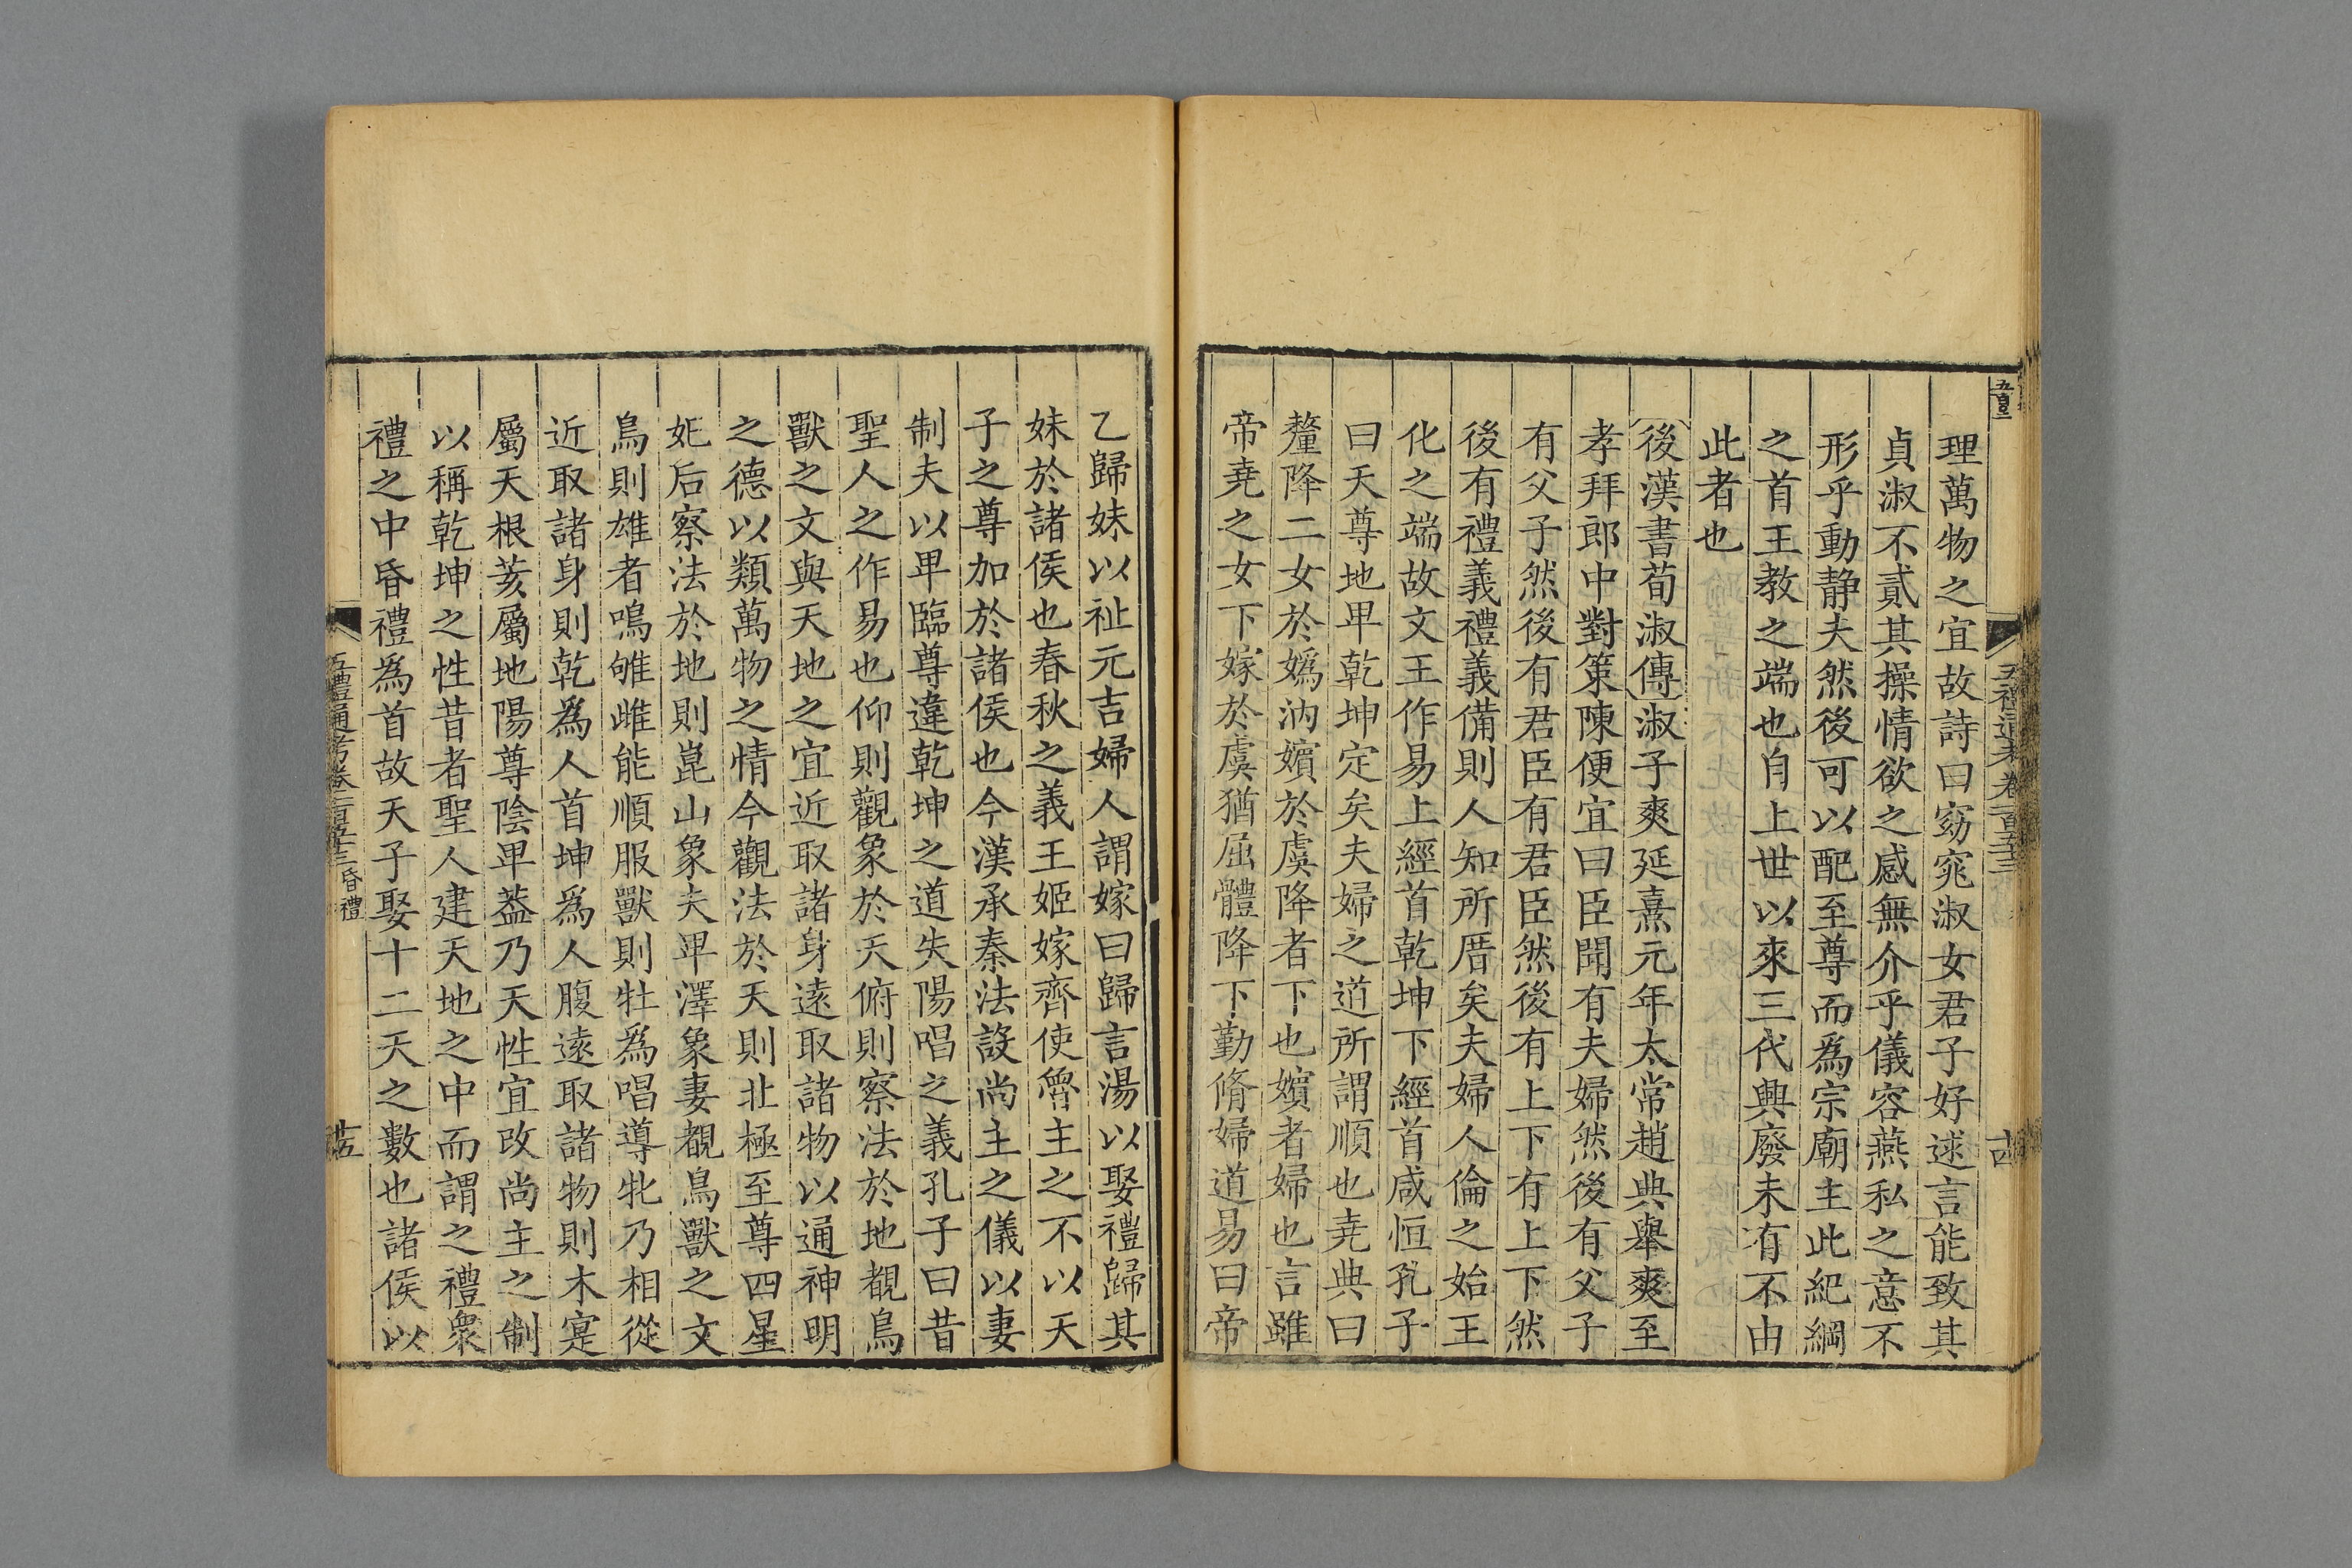 理萬物之宜故詩曰窈窕淑女君子好逑言能致其
貞淑不貳其操情欲之感無介乎儀容燕私之意不
形乎動静夫然後可以配至尊而為宗廟主此紀綱
之首王教之端也自上世以來三代興廢未有不由
此者也
後漢書荀淑傳淑子爽延熹元年太常趙典舉爽至
孝拜郎中對策陳便宜曰臣聞有夫婦然後有父子
有父子然後有君臣有君臣然後有上下有上下然
後有禮義禮義備則人知所厝矣夫婦人倫之始王
化之端故文王作易上經首乾坤下經首咸恒孔子
曰天尊地卑乾坤定矣夫婦之道所謂順也堯典曰
釐降二女於嬀汭嬪於虞降者下也嬪者婦也言雖
帝堯之女下嫁於虞猶屈體降下勤脩婦道易曰帝
乙歸妹以祉元吉婦人謂嫁曰歸言湯以娶禮歸其
妹於諸侯也春秋之義王姬嫁齊使魯主之不以天
子之尊加於諸侯也今漢承秦法設尚主之儀以妻
制夫以卑臨尊違乾坤之道失陽唱之義孔子曰昔
聖人之作易也仰則觀象於天俯則察法於地覩鳥
獸之文與天地之宜近取諸身遠取諸物以通神明
之德以類萬物之情今觀法於天則北極至尊四星
妃后察法於地則崑山象夫卑澤象妻覩鳥獸之文
鳥則雄者鳴雊雌能順服獸則牡為唱導牝乃相從
近取諸身則乾為人首坤為人腹遠取諸物則木寔
屬天根荄屬地陽尊陰卑葢乃天性宜改尚主之制
以稱乾坤之性昔者聖人建天地之中而謂之禮衆
禮之中昏禮為首故天子娶十二天之數也諸侯以
五禮通考卷一百五十三昏禮
十五